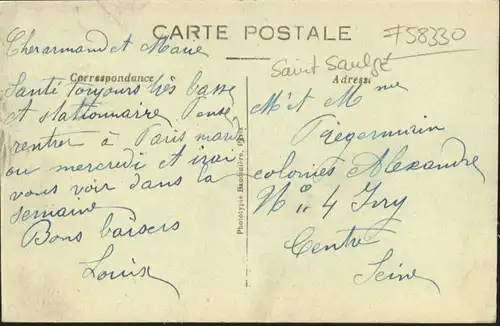 CARTE POSTALE
F58330
Saint Saulge
Correspondance
Adresse
Cher armand et Marie
Santé toujours très basse
et stationnaire Pense
rentrer à Paris mardi
ou mercredi et irai
vous voir dans la
semaine
Bons baisers
Louise
Phototypie Baudinière, Paris
Mr et Mme
Piegermain
colonies Alexandre
No 4 Ivry
Centre
Seine